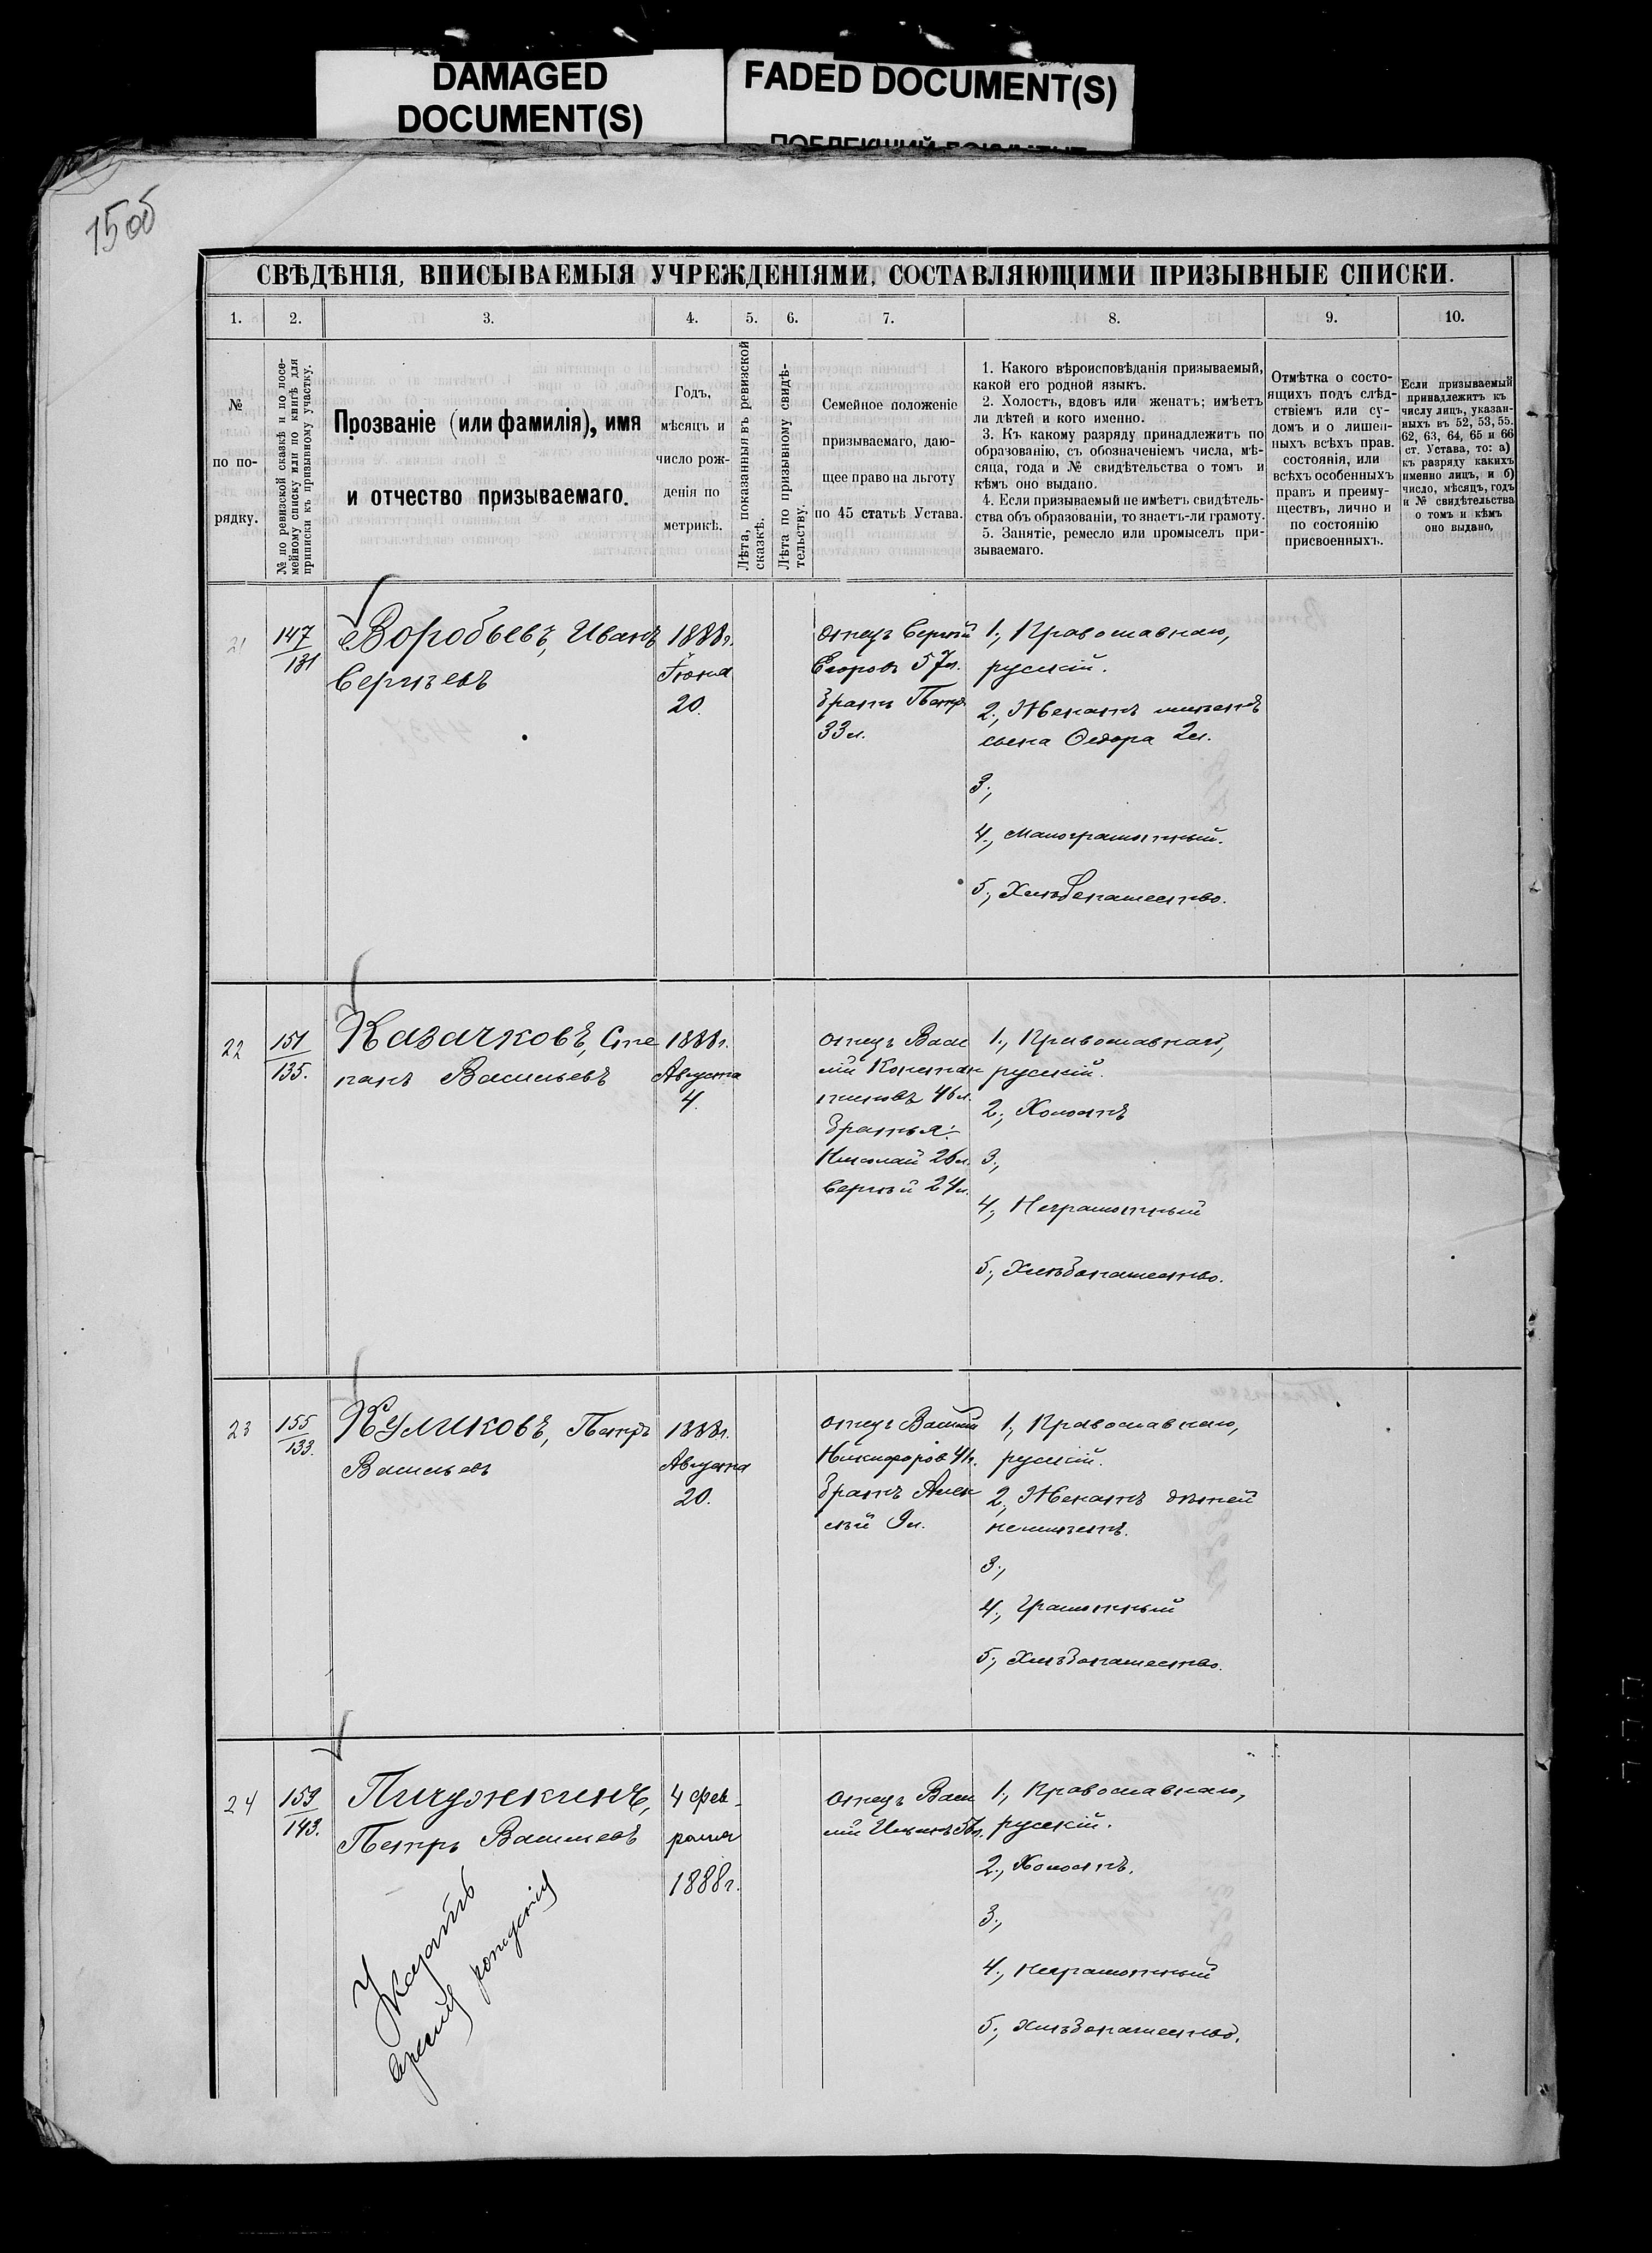 DAMAGED
DOCUMENT(S)
FADED DOCUMENT(S)
15об
СВѢДѢНІЯ, ВПИСЫВАЕМЫЯ УЧРЕЖДЕНІЯМИ, СОСТАВЛЯЮЩИМИ ПРИЗЫВНЫЕ СПИСКИ.
1.
2.
3.
4.
5.
6.
7.
8.
9.
10.
№
по по-
рядку.
№ по ревизской сказкѣ и по посе-
мейному списку или по книгѣ для
приписки къ призывному участку.
Прозваніе (или фамилія), имя
и отчество призываемаго.
Годъ,
мѣсяцъ и
число рож-
денія по
метрикѣ.
Лѣта, показанныя въ ревизской
сказкѣ.
Лѣта по призывному свидѣ-
тельству.
Семейное положеніе
призываемаго, даю-
щее право на льготу
по 45 статьѣ Устава.
1. Какого вѣроисповѣданія призываемый,
какой его родной языкъ.
2. Холостъ, вдовъ или женатъ; имѣетъ
ли дѣтей и кого именно.
3. Къ какому разряду принадлежитъ по
образованію, съ обозначеніемъ числа, мѣ-
сяца, года и № свидѣтельства о томъ и
кѣмъ оно выдано.
4. Если призываемый не имѣетъ свидѣтель-
ства объ образованіи, то знаетъ-ли грамоту.
5. Занятіе, ремесло или промыселъ при-
зываемаго.
Отмѣтка о состо-
ящихъ подъ слѣд-
ствіемъ или су-
домъ и о лишен-
ныхъ всѣхъ прав.
состоянія, или
всѣхъ особенныхъ
правъ и преиму-
ществъ, лично и
по состоянію
присвоенныхъ.
Если призываемый
принадлежитъ къ
числу лицъ, указан-
ныхъ въ 52, 53, 55.
62, 63, 64, 65 и 66
ст. Устава, то: а)
къ разряду какихъ
именно лицъ, и б)
число, мѣсяцъ, годъ
и № свидѣтельства
о томъ и кѣмъ
оно выдано,
21
147
131
Воробьевъ, Иванъ
Сергѣевъ
1888г.
Іюня
20.
отецъ Сергѣй
Егоровъ 57л.
братъ Петръ
33л.
1., Православнаго,
русскій.
2., Женатъ имѣетъ
сына Ѳедора 2л.
3.,
4., Малограмотный.
5., Хлѣбопашество.
22
151
135.
Казачковъ, Сте
панъ Васильевъ
1888г.
Августа
4.
отецъ Васи
лій Констан
тиновъ 46л.
братья:
Николай 26л.
Сергѣй 24л.
1., Православнаго,
русскій.
2., Холостъ
3.,
4., Неграмотный
5., Хлѣбопашество.
23
155
133.
Куликовъ, Петръ
Васильевъ
1888г.
Августа
20.
отецъ Василій
Никифоровъ 41г.
братъ Алек
сѣй 9л.
1., Православнаго,
русскій.
2., Женатъ дѣтей
неимѣетъ.
3.,
4., Грамотный
5., Хлѣбопашество.
24
159
143.
Пичужкинъ,
Петръ Васильевъ
4 фев-
раля
1888г.
отецъ Васи
лій
1., Православнаго,
русскій.
2., Холостъ.
3.,
4., Неграмотный
5., Хлѣбопашество.